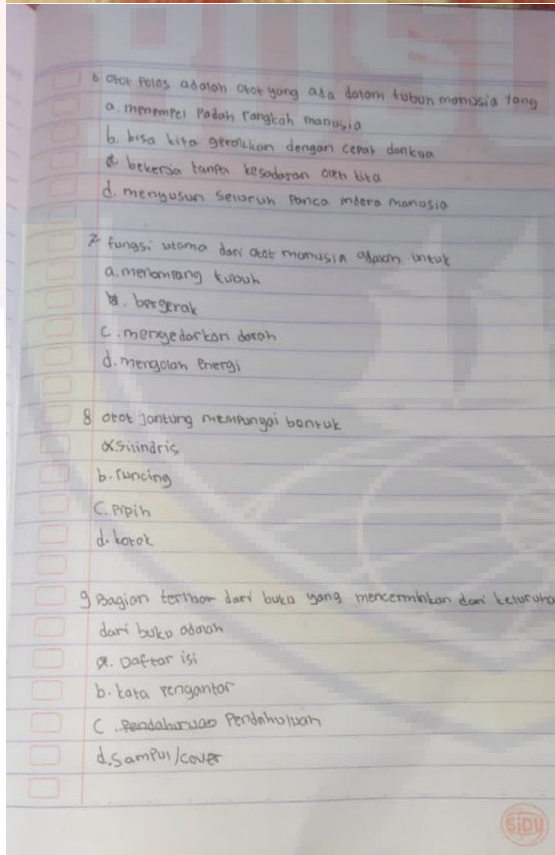 No.
Date
6 otot polos adalah otot yang ada dalam tubuh manusia yang
a. menempel Padah rangkah manusia
b. bisa kita gerakkan dengan cepat dan
c. bekerja tanpa kesadaran oleh kita
d. menyusun seluruh Panca indera manusia
7 fungsi utama dari otot manusia adalah untuk
a. menompang tubuh
b. bergerak
c. mengedarkan darah
d. mengolah Energi
8 otot jantung mempunyai bentuk
a silindris
b. runcing
C. pipih
d. kotak
9 Bagian terluar dari buku yang mencerminkan dari keluruha
dari buku adalah
a. Daftar isi
b. kata pengantar
C. Pendahuluan
d. Sampul/cover
SIDU